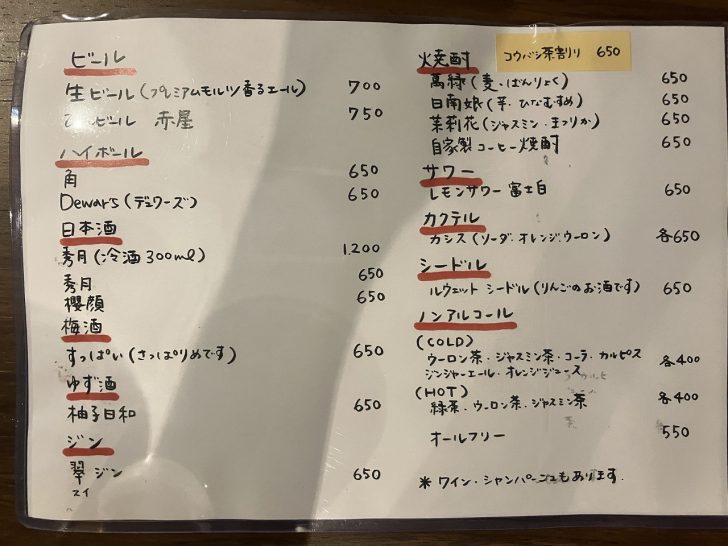 ビール
生ビール(プレミアムモルツ香るエール) 700
ビール 赤星 750
ハイボール
角 650
Dewar's(デュワーズ) 650
日本酒
秀月(冷酒300ml) 1,200
秀月 650
櫻顔 650
梅酒
すっぱい(さっぱりめです) 650
ゆず酒
柚子日和 650
ジン
翠ジン 650
スイ
焼酎
コウバシ茶割り 650
萬緑(麦・ばんりょく 650
日南娘(芋・ひなむすめ) 650
茉莉花(ジャスミン・まつりか) 650
自家製コーヒー焼酎 650
サワー
レモンサワー 富士白 650
カクテル
カシス(ソーダ・オレンジ・ウーロン) 各650
シードル
ルウェット シードル(りんごのお酒です) 650
ノンアルコール
(COLD)
ウーロン茶・ジャスミン茶・コーラ・カルピス 各400
ジンジャーエール・オレンジジュース
(HOT)
緑茶・ウーロン茶・ジャスミン茶 各400
オールフリー 550
※ ワイン・シャンパーニュもあります.